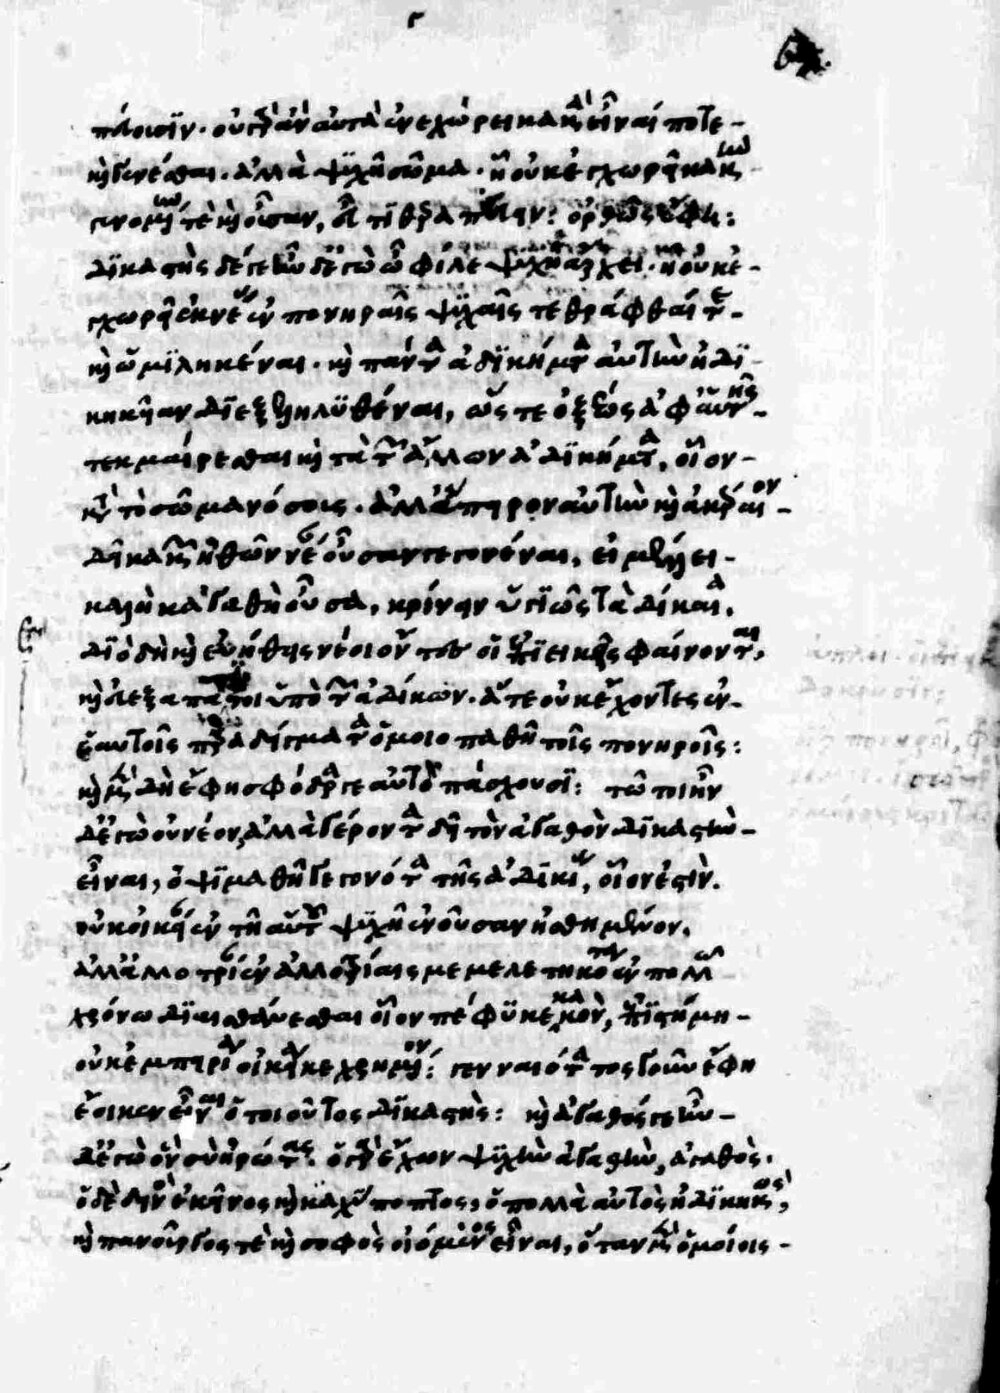 πεύουσϊν. οὐ γὰρ ἂν αὐτὰ ἐνεχώρει κακὰ εἶναί ποτε
καὶ γενέσθαι. ἀλλὰ ψϋχῆ σῶμα. ᾗ οὐκ ἐγχωρεῖ κακὴν
γενομένην τὲ καὶ οὖσαν, εὖ τῒ θεραπεύειν: ὀρθῶς ἔφη:
δϊκαστὴς δέ γε ὦ φίλε ψϋχῇ ψϋχῆς ἄρχει. ᾗ οὐκ ἐγ
χωρεῖ ἐκ νέας ἐν πονηραῖς ψϋχαῖς τεθράφθαί τε
καὶ ὡμϊληκέναι. καὶ πάντα ἀδϊκήματα αὐτὴν ἠδϊ
κηκυῖαν δϊεξεληλϋθέναι, ὥς τε ὀξέως ἀφ' αὑτῆς
τεκμαίρεσθαι καὶ τὰ τῶν ἄλλων ἀδϊκήματα, οἷον
κατὰ τὸ σῶμα νόσοις. ἀλλ' ἄπειρον αὐτὴν καὶ ἀκέραιον
δεῖ κακῶν ἠθῶν νέαν οὖσαν γεγονέναι, εἰ μέλλει
καλὴ κἀγαθὴ οὖσα, κρίνειν ὑγϊῶς τὰ δίκαια.
δϊὸ δὴ καὶ εὐήθεις νέοι ὄντες οἱ ἐπϊεικεῖς φαίνονται,
καὶ εὐεξαπάτητοι ὑπὸ τῶν ἀδίκων. ἅτε οὐκ ἔχοντες ἐν
ἑαυτοῖς παραδείγματα ὁμοιοπαθῆ τοῖς πονηροῖς:
καὶ μὲν δὴ ἔφη σφόδρα γε αὐτὸ πάσχουσϊ: τῶ τοι ἦν
δ' ἐγὼ οὐ νέον, ἀλλὰ γέροντα δεῖ τὸν ἀγαθὸν δϊκαστὴν
εἶναι, ὀψϊμαθῆ γεγονότα τῆς ἀδϊκίας, οἷον ἐστὶν.
οὐκ οἰκείαν ἐν τῇ αὑτοῦ ψϋχῇ ἐνοῦσαν ἠσθημένον.
ἀλλ' ἀλλοτρίαν ἐν ἀλλοτρίαις μεμελετηκότα ἐν πολλῶ
χρόνω δϊαισθάνεσθαι οἷον πέφϋκε κακὸν, ἐπϊστήμῃ
οὐκ ἐμπειρίᾳ οἰκείᾳ κεχρημένον: γενναιότατος γοῦν ἔφη
ἔοικεν εἶναι ὁ τοιοῦτος δϊκαστὴς: καὶ ἀγαθός γε ἦν
δ' ἐγὼ ὃν σὺ ἠρώτας. ὁ γὰρ ἔχων ψϋχὴν ἀγαθὴν, ἀγαθὸς.
ὁ δὲ δεινὸς ἐκεῖνος καὶ καχύποπτος, ὁ πολλὰ αὐτὸς ἠδϊκηκὼς,
καὶ πανοῦργος τὲ καὶ σοφὸς οἰόμενος εἶναι, ὅταν μὲν ὁμοίοις